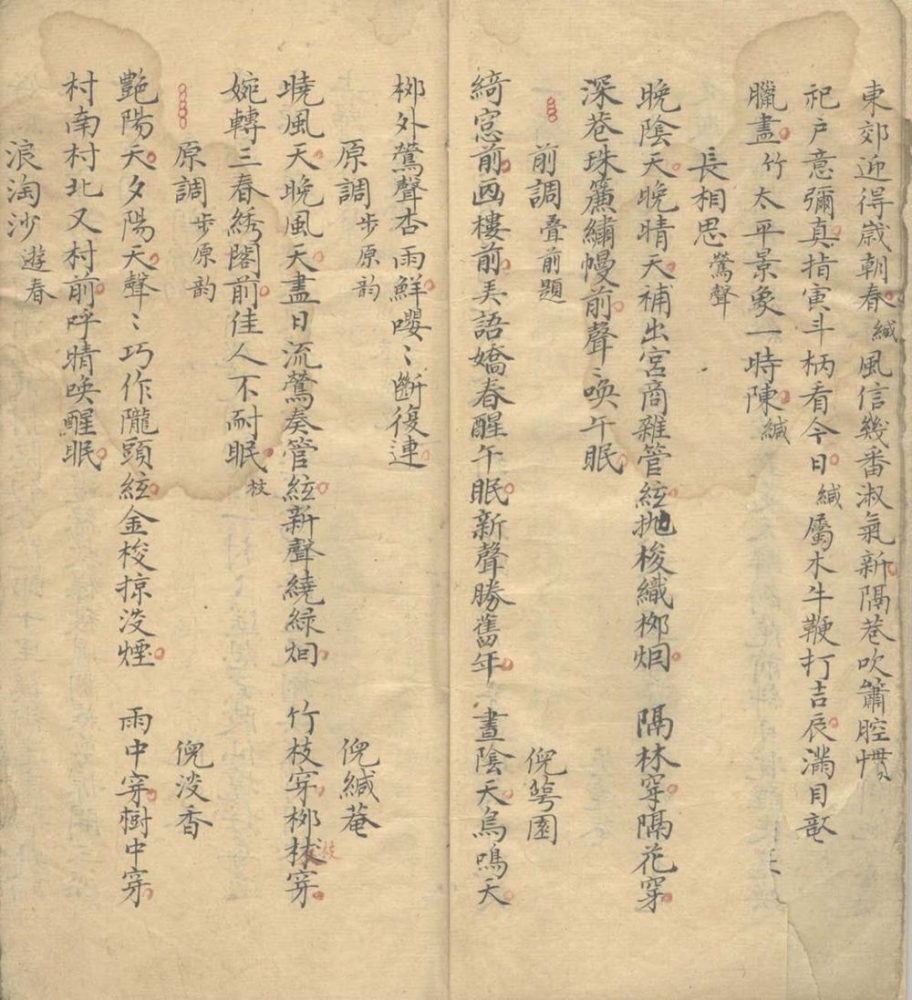 東郊迎得歲朝春緘風信幾番淑氣新隔巷吹簫腔慣
祀戶意彌真指寅斗柄看今日緘屬木牛鞭打吉辰滿目
臘盡竹太平景象一時陳緘
長相思鶯聲
晚陰天晚晴天補出宮商雜管絃拋梭織栁烟　隔林穿隔花穿
深巷珠簾繡幔前聲〻喚午眠
前調疊前題　倪萼園
綺窓前畫樓前美語嬌春醒午眠新聲勝舊年　晝陰天鳥鳴天
栁外鶯聲杏雨鮮嚶〻斷復連
原調步原韵　倪緘菴
曉風天晚風天盡日流鶯奏管絃新聲繞綠烟　竹枝穿栁枝穿
婉轉三春綉閣前佳人不耐眠枝
原調步原韵　倪淡香
艷陽天夕陽天聲〻巧作隴頭絃金梭掠淡煙　雨中穿樹中穿
村南村北又村前呼晴喚醒眠
浪淘沙遊春